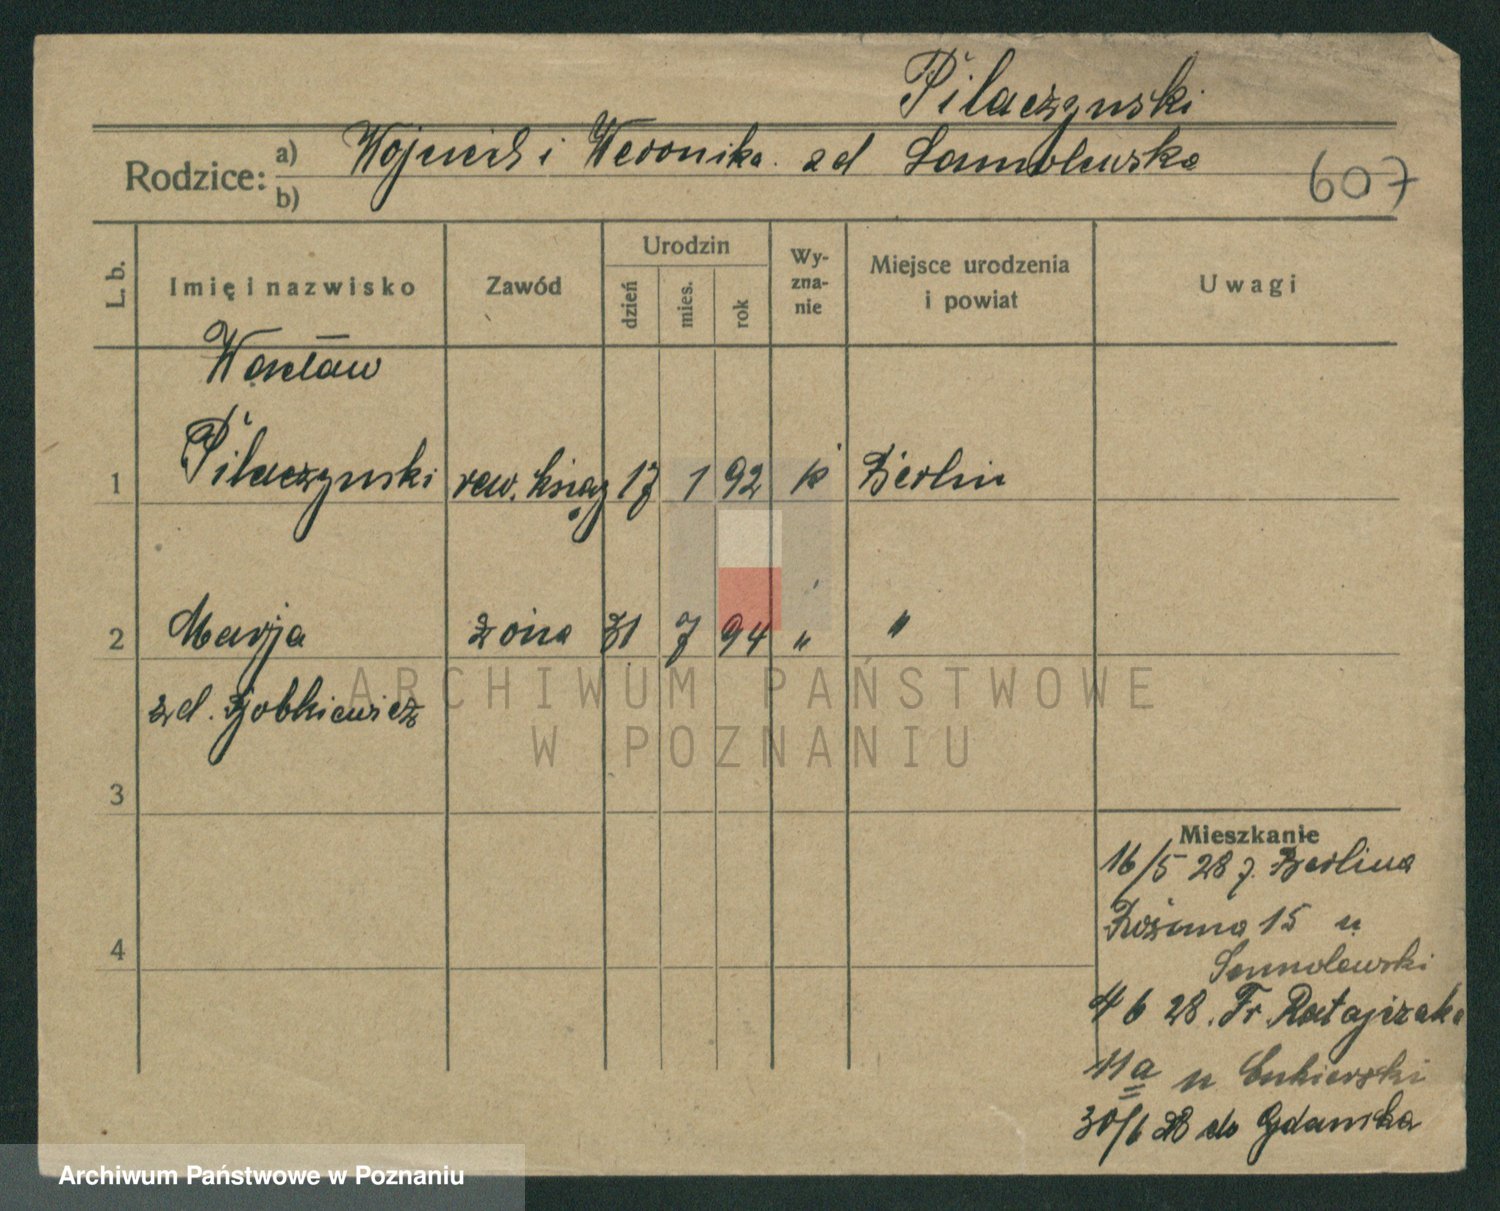 Pilaczynski
Rodzice: a) Wojciech i Weronika zd Samolewska
b)
607
L. b. Imię i nazwisko Zawód Urodzin dzień mies. rok Wyzna-nie Miejsce urodzenia i powiat Uwagi
Wacław
1 Pilaczynski rew. książ 17 1 92 k Berlin
2 Marja żona 31 7 94 " "
zd.
3
Mieszkanie
16/5 28 z Berlina
Różana 15 u
Samolewski
4
4 6 28. Fr. Ratajczaka
11a u Cukierski
30/6 28 do Gdanska
ARCHIWUM PAŃSTWOWE
W POZNANIU
Archiwum Państwowe w Poznaniu